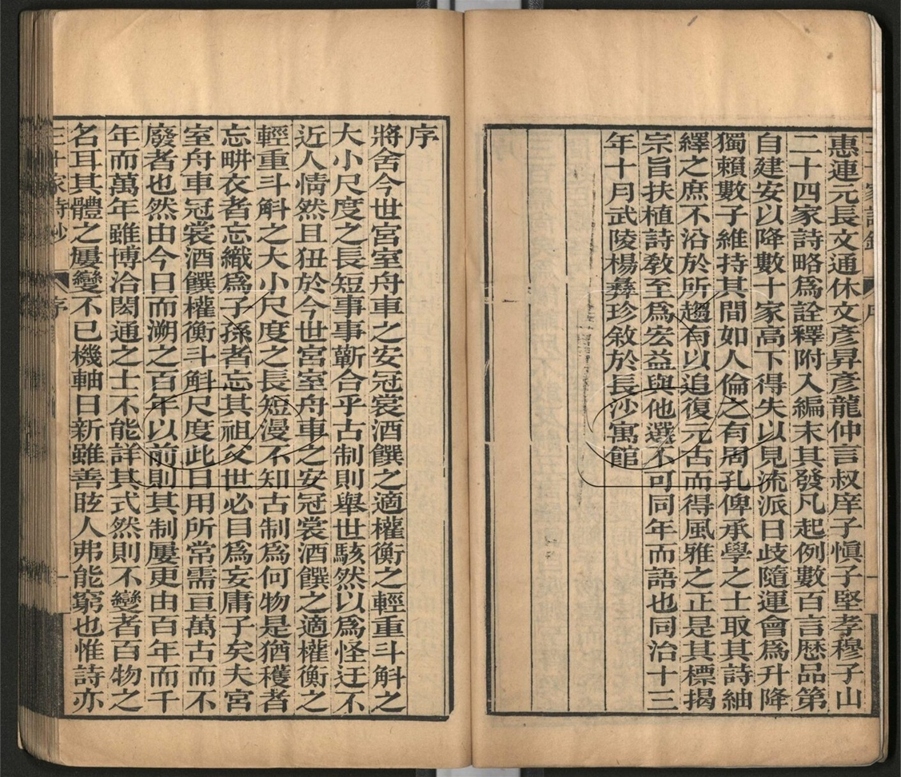 惠連元長文通休文彥昇彥龍仲言叔庠子愼子堅孝穆子山
二十四家詩略爲詮釋附入編末其發凡起例數百言歷品第
自建安以降數十家高下得失以見流派日歧隨運會爲升降
獨賴數子維持其間如人倫之有周孔俾承學之士取其詩紬
繹之庶不沿於所趨有以追復元古而得風雅之正是其標揭
宗旨扶植詩敎至爲宏益與他選不可同年而語也同治十三
年十月武陵楊彝珍敘於長沙寓館
序
將舍今世宮室舟車之安冠裳酒饌之適權衡之輕重斗斛之
大小尺度之長短事事蘄合乎古制則舉世駭然以爲怪迂不
近人情然且狃於今世宮室舟車之安冠裳酒饌之適權衡之
輕重斗斛之大小尺度之長短漫不知古制爲何物是猶穫者
忘畊衣者忘織爲子孫者忘其祖父世必目爲妄庸子矣夫宮
室舟車冠裳酒饌權衡斗斛尺度此日用所常需亘萬古而不
廢者也然由今日而溯之百年以前則其制屢更由百年而千
年而萬年雖博洽閎通之士不能詳其式然則不變者百物之
名耳其體之屢變不已機軸日新雖善眩人弗能窮也惟詩亦
三十家詩鈔 序 一